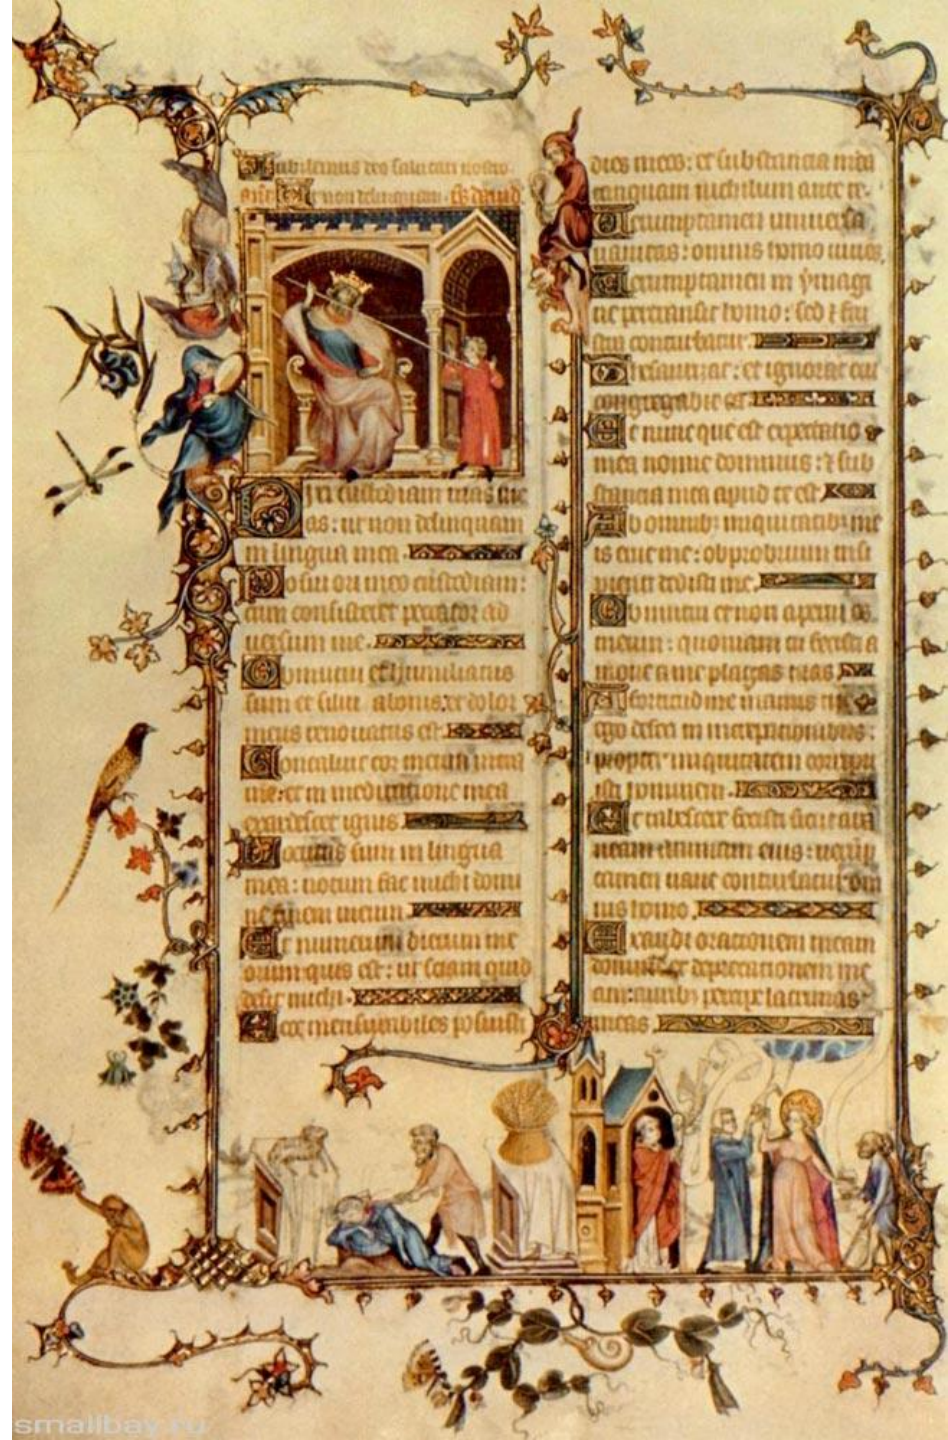 Exultemus deo salutari nostro
Ut non delinquam
Dixi custodiam vias me
as: ut non delinquam
in lingua mea.
Posui ori meo custodiam:
cum consisteret peccator ad
versum me.
Obmutui et humiliatus
sum et silui a bonis: et dolor
meus renovatus est.
Concaluit cor meum intra
me: et in meditatione mea
exardescet ignis.
Locutus sum in lingua
mea: notum fac michi domi
ne finem meum.
Et numerum dierum me
orum quis est: ut sciam quid
desit michi.
Ecce mensurabiles posuisti
dies meos: et substancia mea
tanquam nichilum ante te.
Verumptamen universa
vanitas: omnis homo vivens
Verumptamen in ymagi
ne pertransit homo: sed
conturbatur.
Thesaurizat: et ignorat cui
congregabit ea.
Et nunc que est expectatio
mea nonne dominus: et sub
stancia mea apud te est.
Ab omnibz iniquitatibz me
is erue me: obprobrium insi
pienti dedisti me.
Obmutui et non aperui os
meum: quoniam tu fecisti a
move a me plagas tuas.
A fortitudine manus tue
ego defeci in increpationibus:
propter iniquitatem corripu
isti hominem.
Et tabescere fecisti sicut ara
neam animam eius:
tamen vane conturbatur om
nis homo.
Exaudi orationem meam
domine et deprecationem me
am: auribz percipe lacrimas
meas.
smallbay.ru